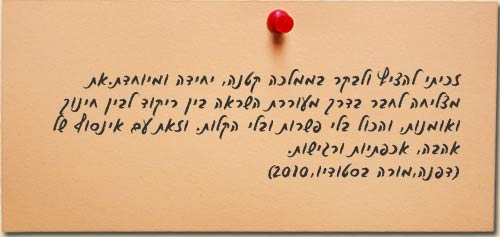 זכיתי להציץ ולבקר בממלכה קטנה, יחידה ומיוחדת.את
מצליחה לחבר בדרך מעוררת השראה בין ריקוד לבין חינוך
ואומנות, והכול בלי פשרות ובלי הקלות. וזאת עם אינסוף של
אהבה, אכפתיות ורגישות.
(דפנה,מורה בסטודיו,2010)